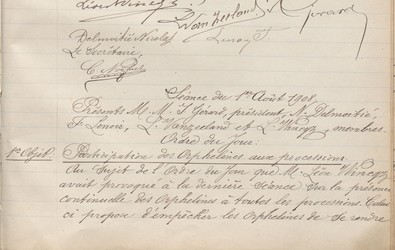 Delmoitié Nicolas
Le Secrétaire,
Séance du 1er Août 1908.
Présents M. M. J. Gérard, président, N. Delmoitié,
F. Lenoir, L. Vanzeeland et L. Wincqz, membres.
Ordre du Jour:
1er Objet. Participation des Orphelines aux processions.
Au Sujet de l'Ordre du Jour que M. Léon Wincqz
avait provoqué à la dernière séance sur la présence
continuelle des Orphelines à toutes les processions. Celui
ci propose d'empêcher les Orphelines de se rendre